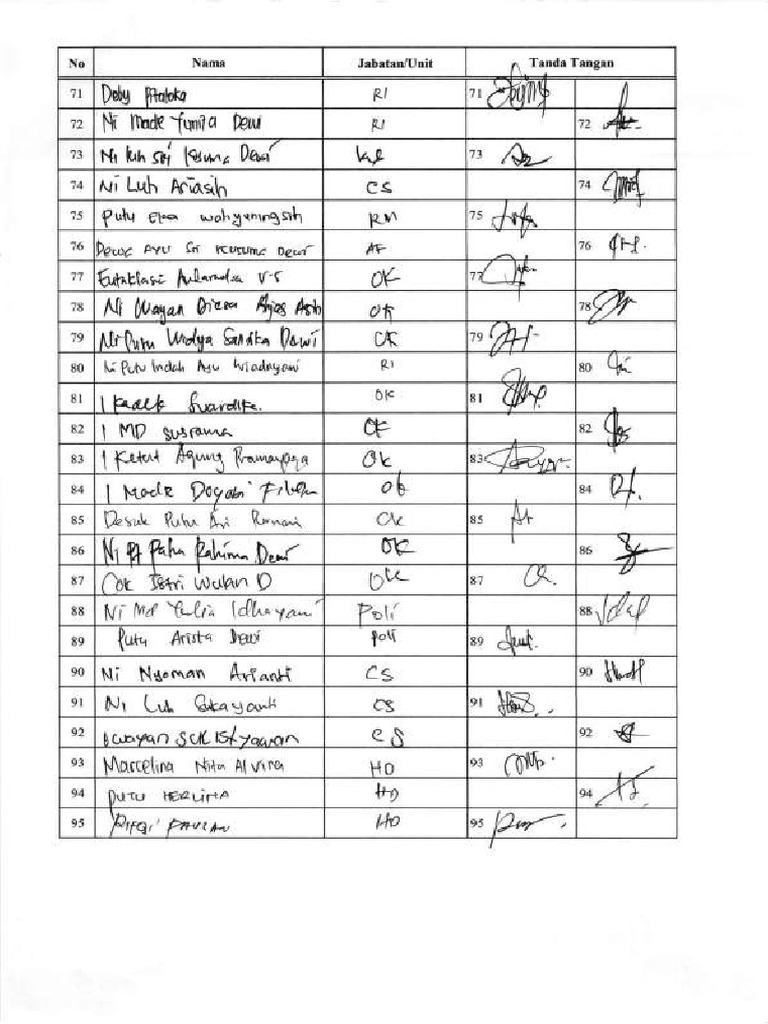 No Nama Jabatan/Unit Tanda Tangan
71 Deby RI 71
72 Ni Made Yunita Dewi RI 72
73 Ni Luh Sri Kusuma Dewi 73
74 Ni Luh Ariasih CS 74
75 Putu Eka Wahyuningsih RM 75
76 Dewa Ayu Sri Kusuma Dewi AF 76
77 OK 77
78 Ni Wayan OK 78
79 Ni Putu Widya Dewi OK 79
80 Ni Putu Indah Ayu Wiadnyani RI 80
81 I Kadek Suardika. OK 81
82 I MD Susrama OK 82
83 I Ketut Agung OK 83
84 I Made 84
85 Desak Putu Ari OK 85
86 Ni Pt Rahima Dewi OK 86
87 Cok Istri Wulan D OK 87
88 Ni Md Yulia Idhayani Poli 88
89 Putu Arista Dewi Poli 89
90 Ni Nyoman Arianti CS 90
91 Ni Luh Sukayanti CS 91
92 CS 92
93 Marcelina Nita Alvira HD 93
94 Putu Herlina HD 94
95 HD 95